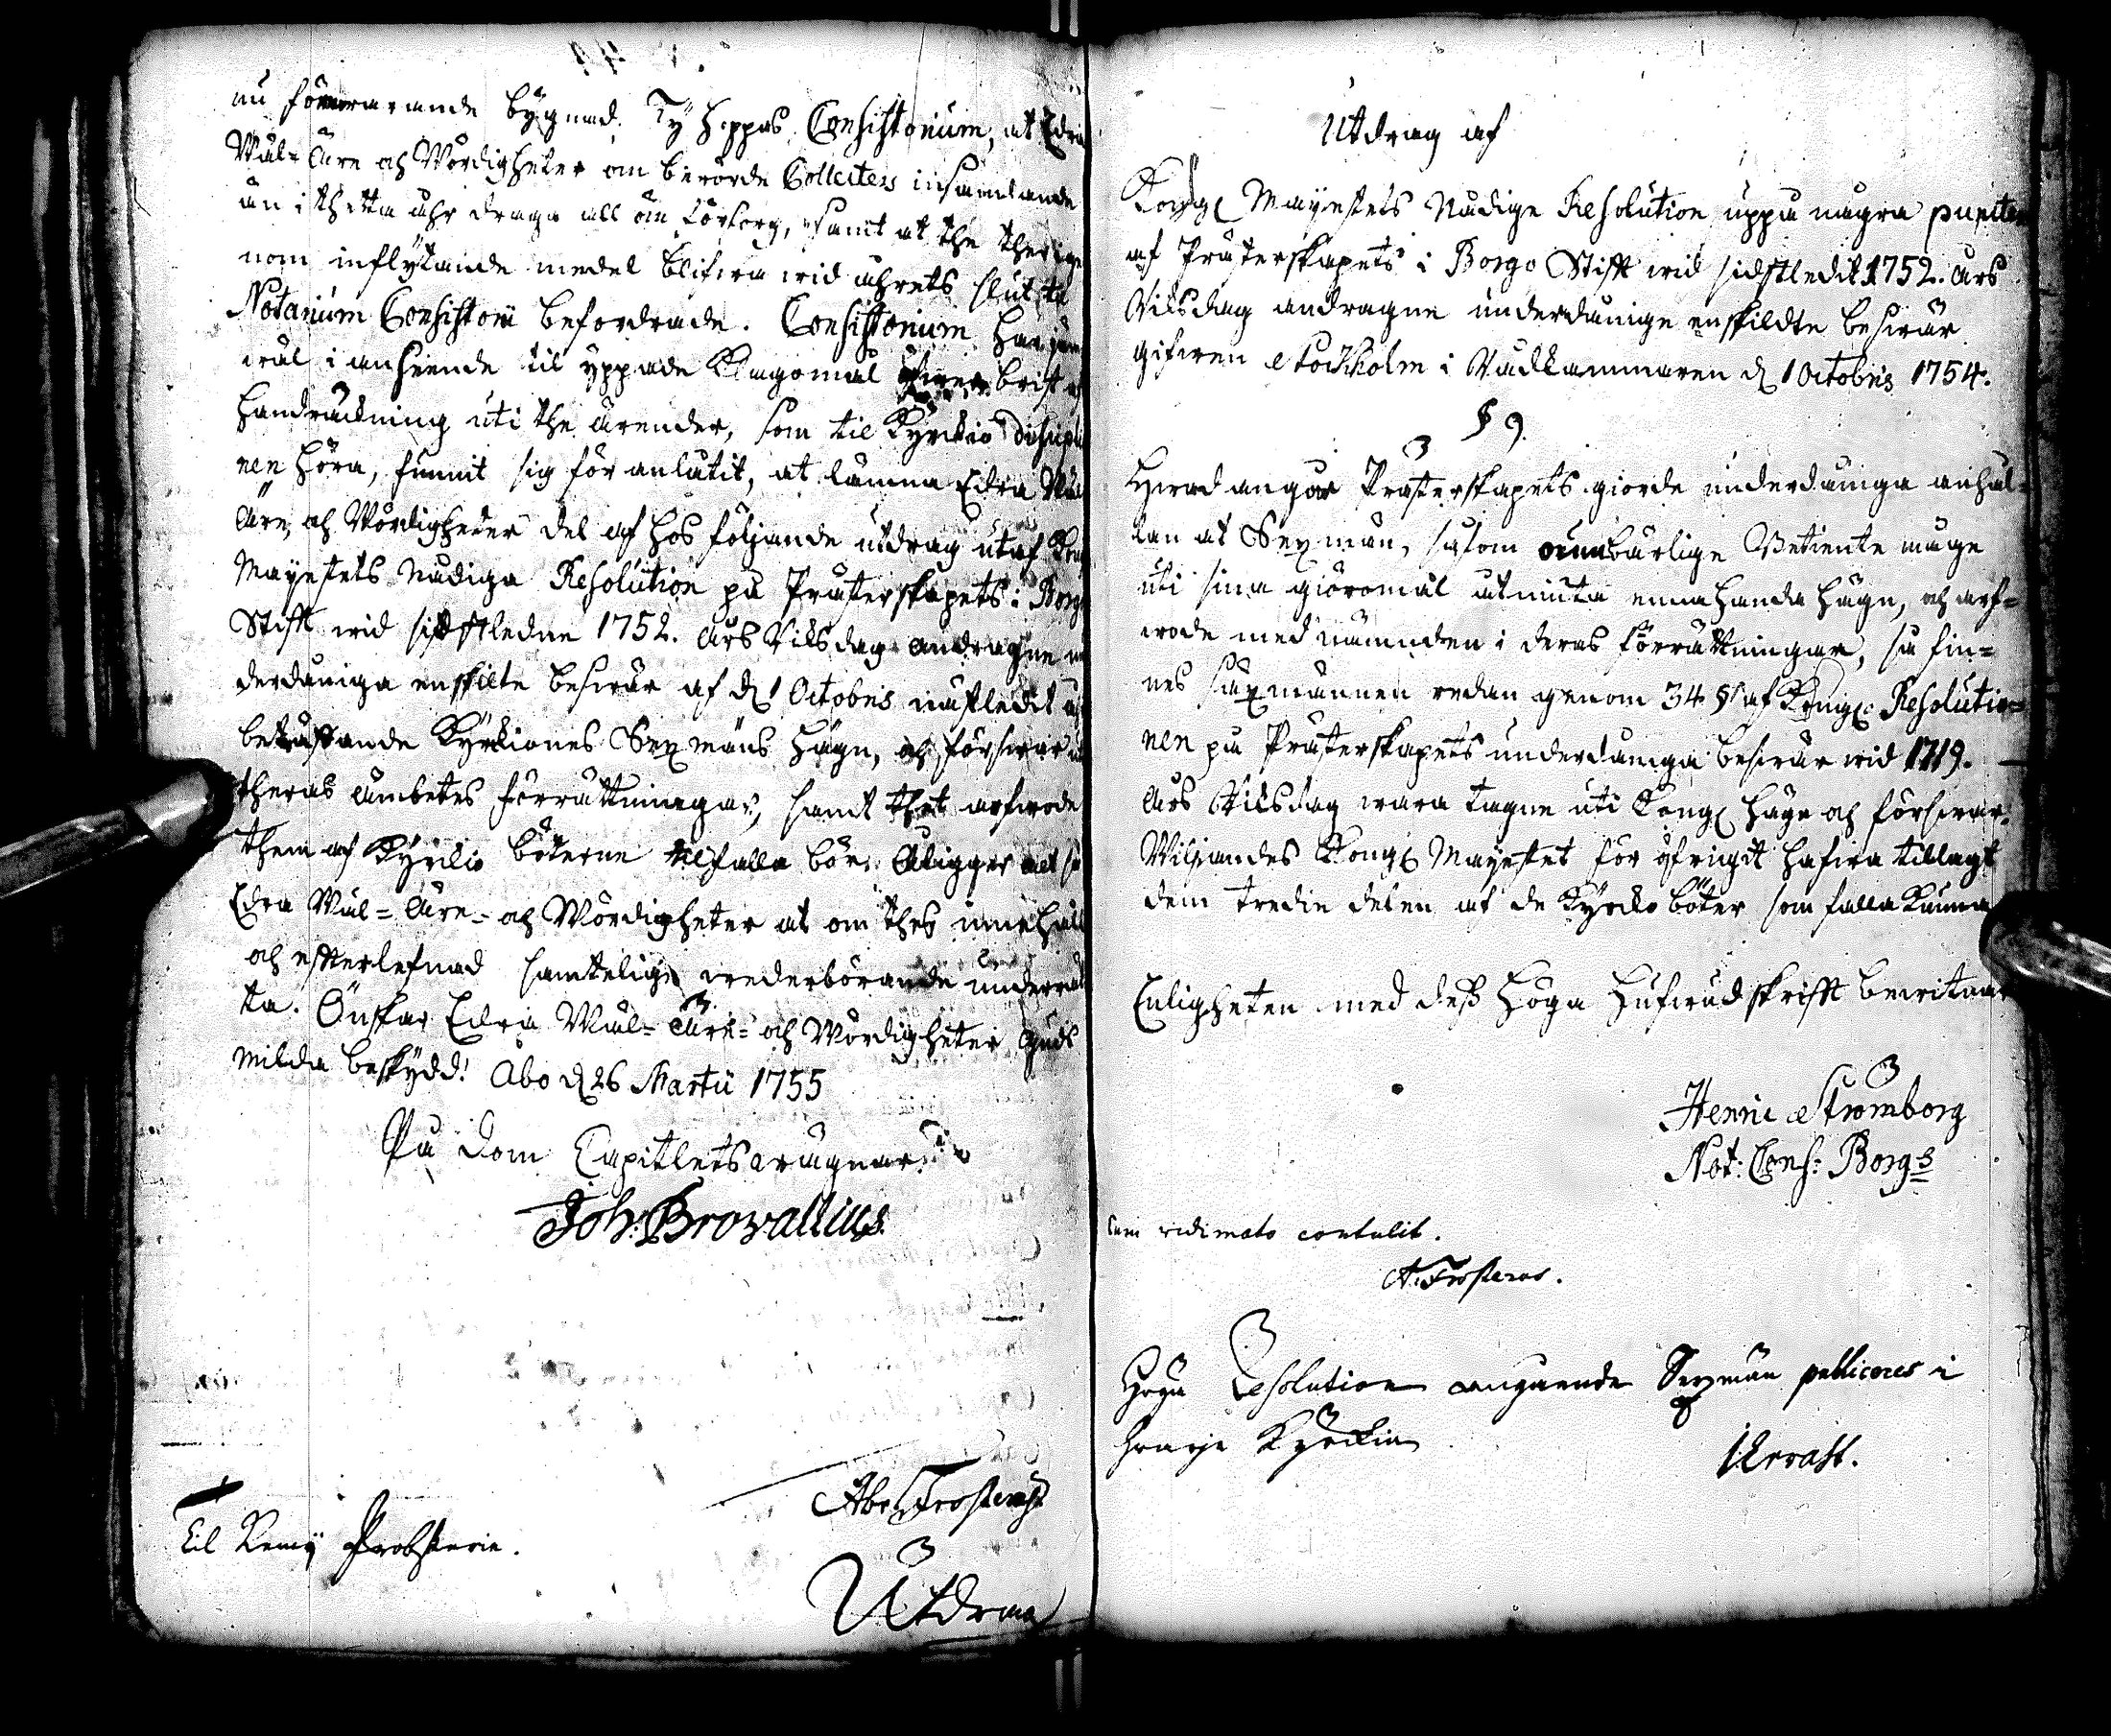 nu förewarande bygnad. Ty hoppas Consistorium, at Edra
Wäl-Äre och Wördigheter om berörde Collecters insamlande
än i thetta åhr draga all öm försorg, samt at the therige
nom inflytande medel blifwa wid åhrets slut til
Notarium Consistorii befordrade. Consistorium har jem
wäl i anseende til yppade Klagomål öfwer brist af
handräckning uti the ärender, som til Kyrckio discipli
nen höra, funnit sig föranlåtit, at lämna Edra Wäl
Äre, och Wördigheter del af hos följande utdrag utaf Kong
Mayestets Nådiga Resolution på Prästerskapets i Borgo
Stift wid sidstledne 1752. Års Riksdag andragne un
derdåniga enskilte beswär af d. 1 Octobris nästledit åhr
beträffande Kyrkiones Sexmäns hägn, och förswar uti
theras ämbetes förrättningar, samt thet arfwode
them af Kyrckio böterne tilfalla bör. Åligger altså
Edra Wäl-Äre- och Wördigheter at om thes innehåll
och efterlefnad samtelige wederbörande underrät
ta. Önskar Edra Wäl-Äre- och Wördigheter Guds
milda beskydd! Åbo d. 26 Martii 1755
På Dom Capitlets wägnar
Joh: Browallius
Abr. Frosterus
Til Kemi Probsterie.
Utdrag
Utdrag af
Kongl Mayestets Nådige Resolution uppå några puncter
af Prästerskapets i Borgo Stift wid sidstledit 1752. Års
Riksdag andragne underdånige enskildte beswär
gifwen Stockholm i Rådkammaren d. 1 Octobris 1754.
§ 9.
Hwad angår Prästerskapets giorde underdåniga anhål-
lan at Sexmän, såsom oumbärlige Betiente måge
uti sina giöromål åtniuta enahanda hägn, och arf-
wode med nämnden i deras förrättningar, så fin-
nes säxmännen redan genom 34 § af Kongl. Resolutio-
nen på Prästerskapets underdåniga beswär wid 1719.
Års Riksdag wara tagne uti Kongl hägn och förswar.
Wiljandes Kongl Mayestet för öfrigit hafwa tillagt
dem tredie delen af de Kyrcko böter som falla kunna
Enligheten med dess höga hufwudskrift bewitnar
Henric Strömborg
Not: Cons: Borg:s
Cum vidimato contulit.
A. Frosterus.
Höga Resolution angående Sexmän publiceres i
hwarje Kyrckia